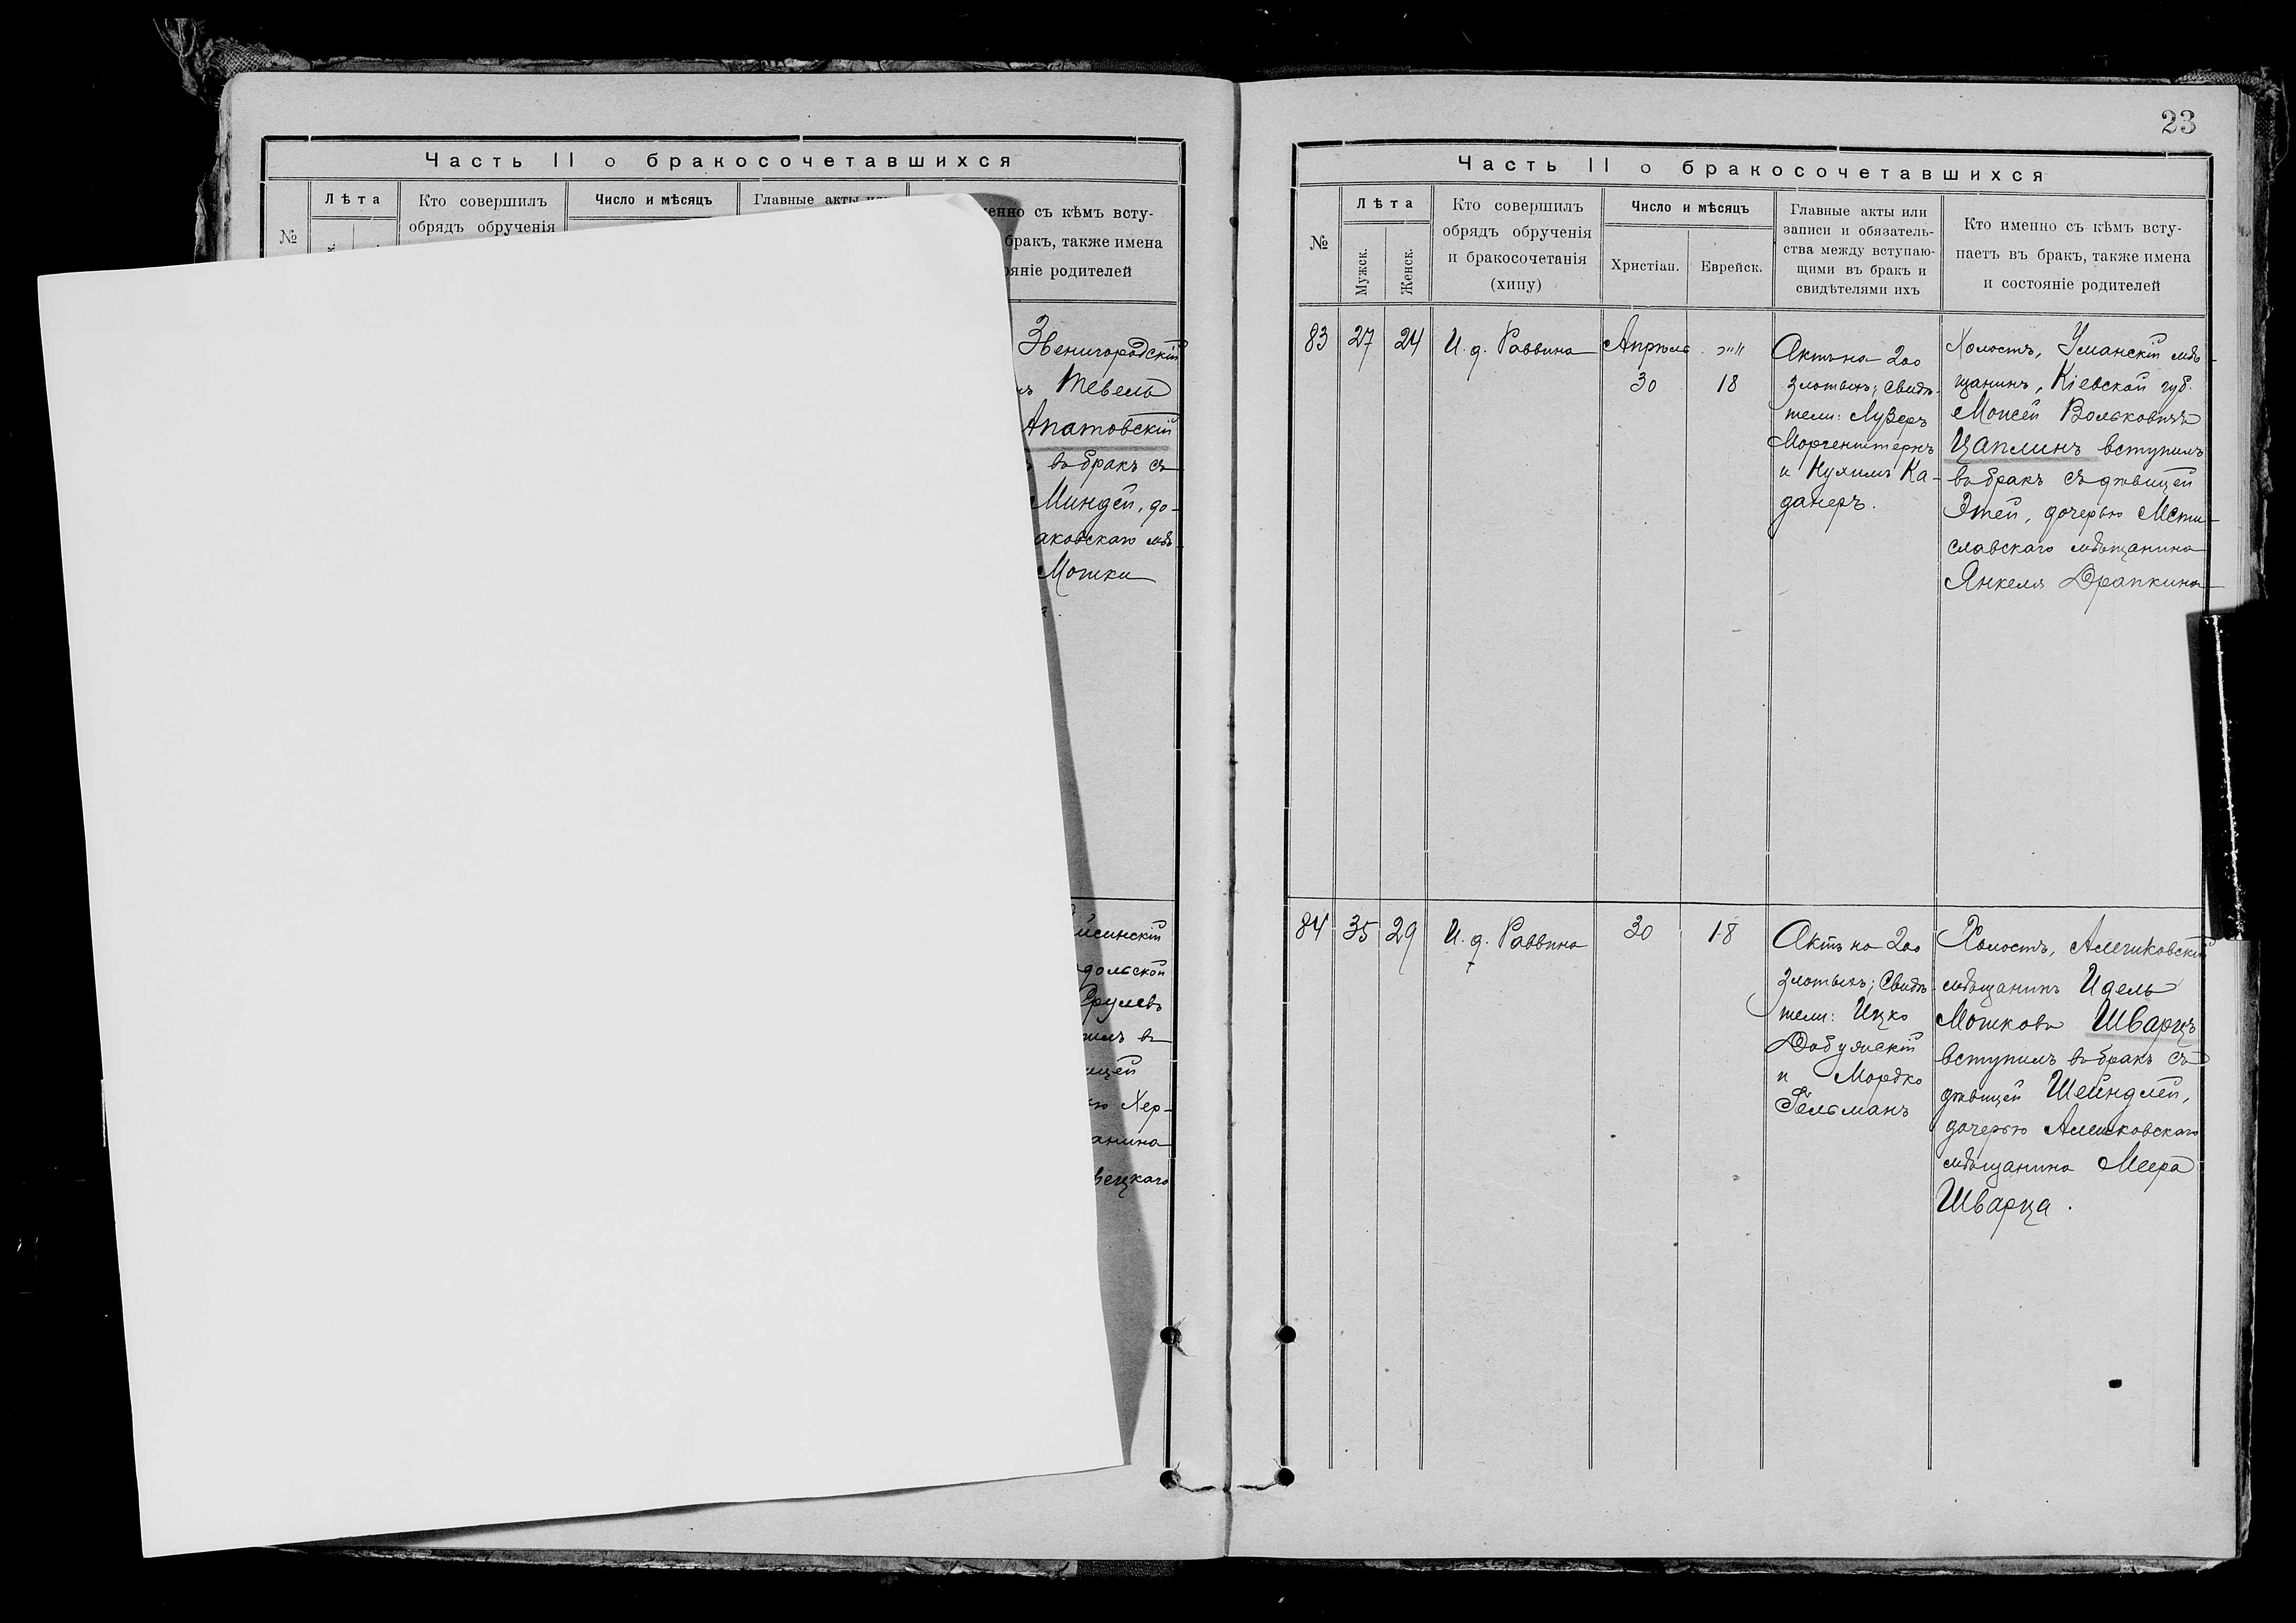 Часть II о бракосочетавшихся
№
Лѣта
Кто совершилъ
обрядъ обрученія
Число и мѣсяцъ
Главные акты или
съ кѣмъ всту-
бракъ, также имена
родителей
Звенигородскій
Тевель
Апатовскій
въ бракъ съ
Миндей, до-
мѣ-
Мошки
Хер-
23
Часть II о бракосочетавшихся
№
Лѣта
Мужск.
Женск.
Кто совершилъ
обрядъ обрученія
и бракосочетанія
(хипу)
Число и мѣсяцъ
Христіан.
Еврейск.
Главные акты или
записи и обязатель-
ства между вступаю-
щими въ бракъ и
свидѣтелями ихъ
Кто именно съ кѣмъ всту-
паетъ въ бракъ, также имена
и состояніе родителей
83
27
24
И. д. Раввина
Апрѣль
30
18
Актъ на 200
злотыхъ; Свидѣ-
тели: Лузеръ
Моргенштернъ
и Нухимъ Ка-
данеръ.
Холостъ, Уманскій мѣ-
щанинъ, Кіевской губ.
Моисей Вольковичъ
Цаплинъ вступилъ
въ бракъ съ дѣвицей
Этей, дочерью Мсти-
славскаго мѣщанина
Янкеля Драпкина
84
35
29
И. д. Раввина
30
18
Актъ на 200
злотыхъ; Свидѣ-
тели: Ицко
и Мордко
Гельманъ
Холостъ, Алешковскій
мѣщанинъ Идель
Мошковъ Шварцъ
вступилъ въ бракъ съ
дѣвицей Шейндлей,
дочерью Алешковскаго
мѣщанина Меера
Шварца.